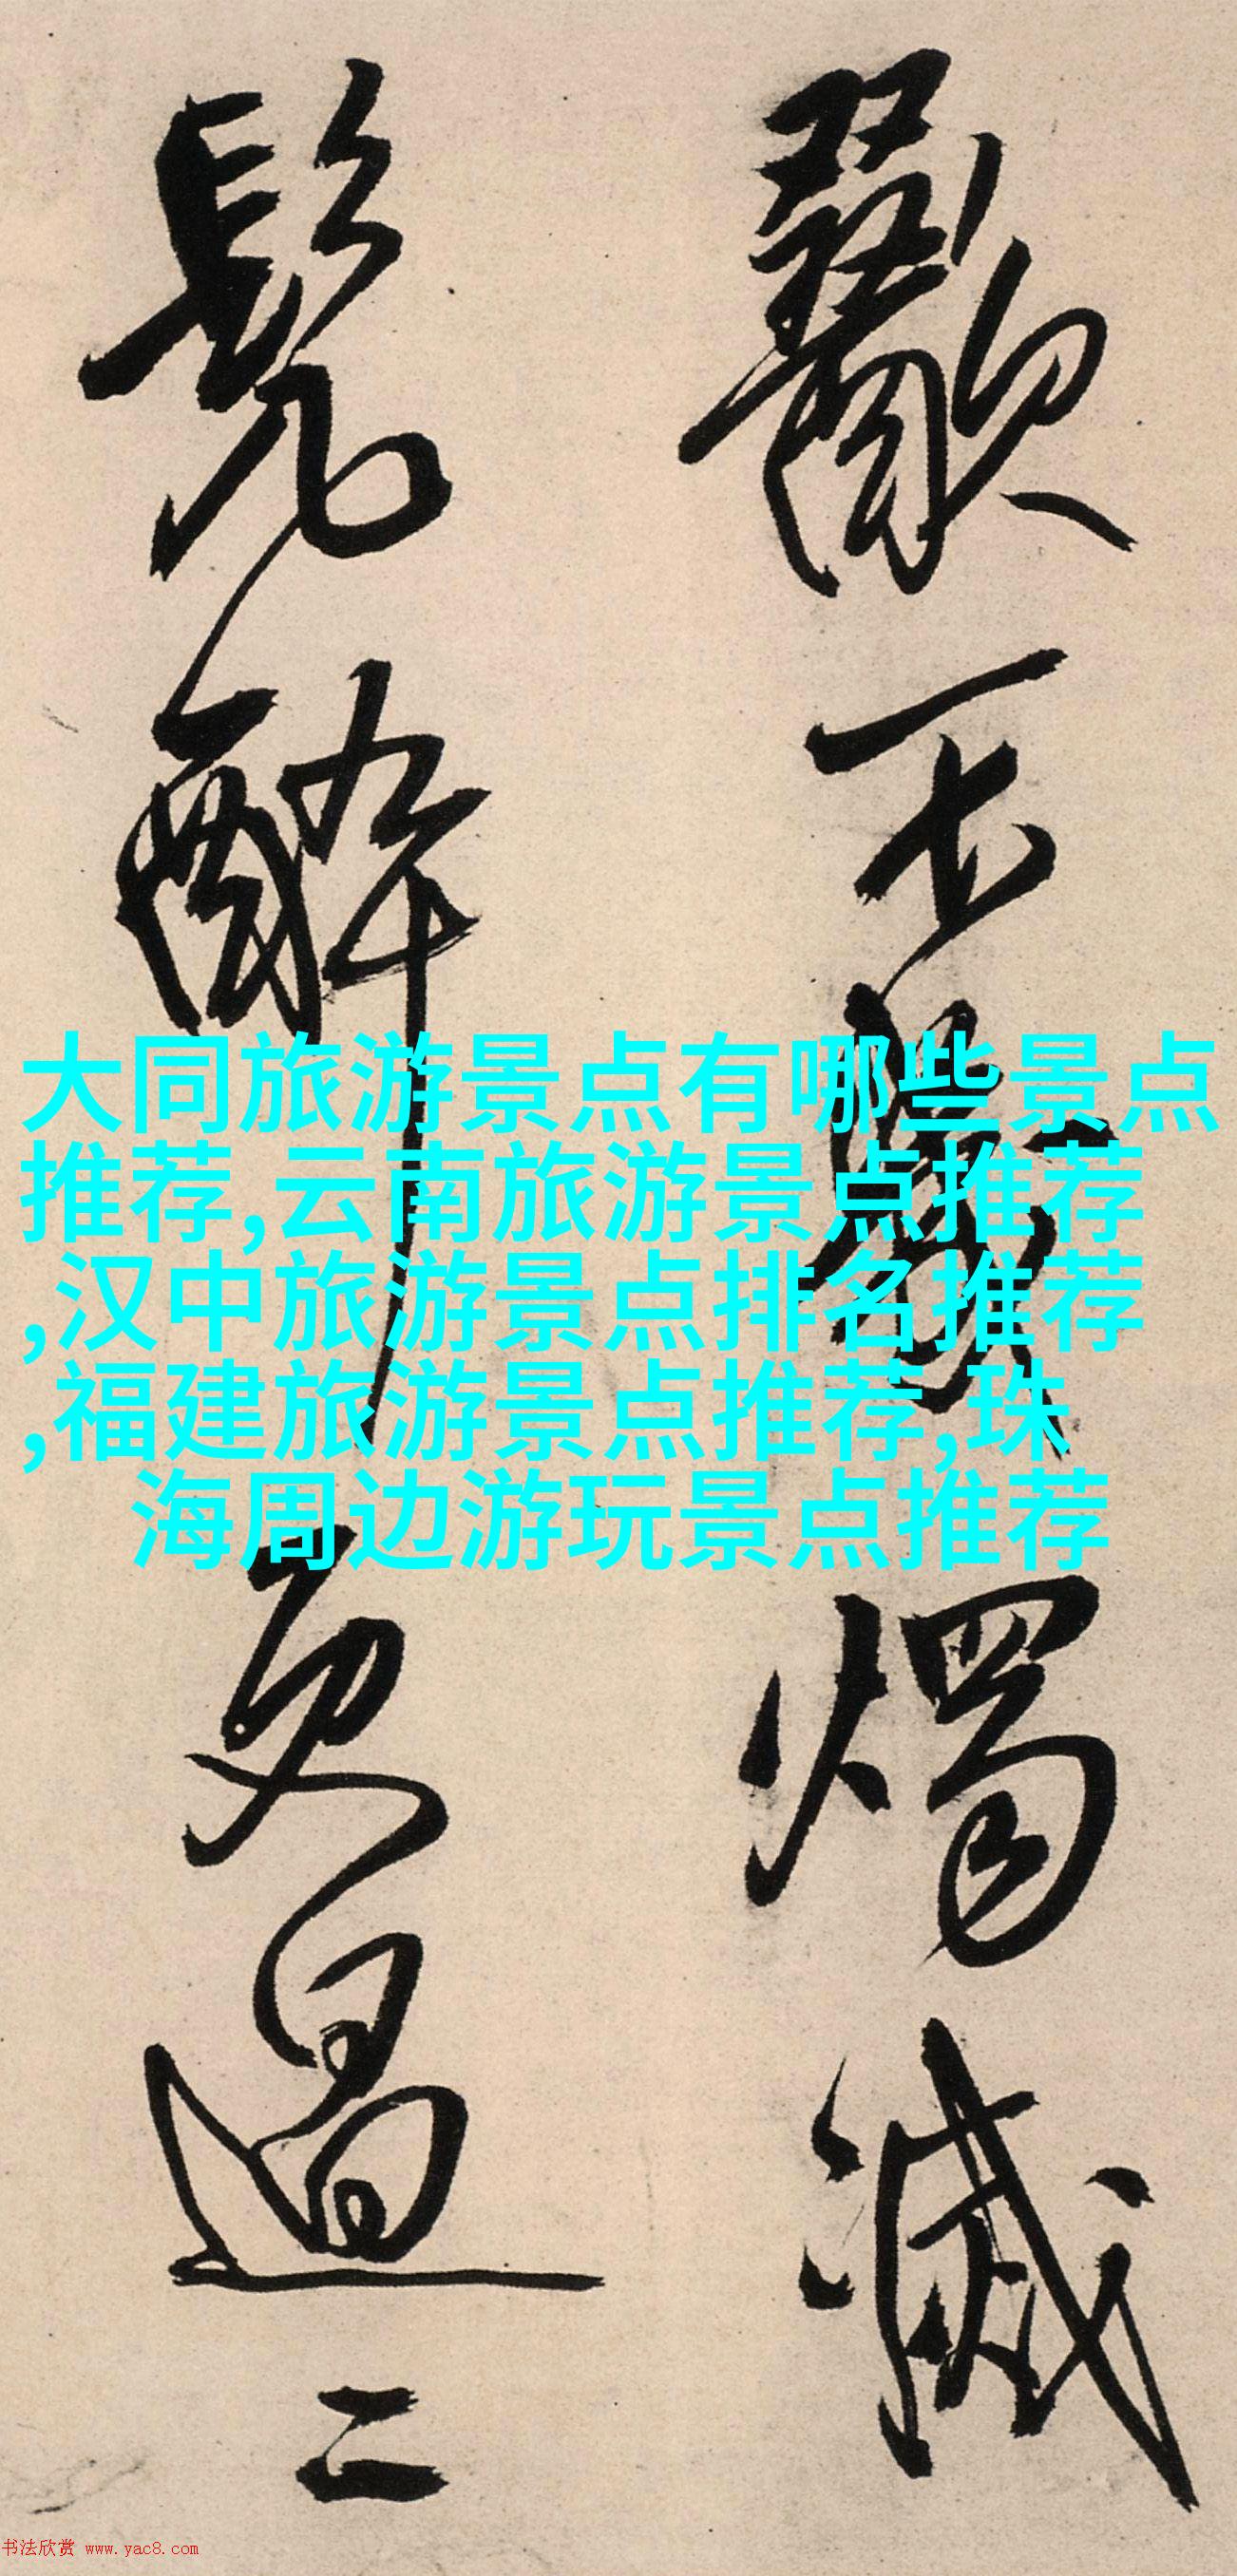 歠不盡燭滅
鬓醉更過二
大同旅游景点有哪些景点
推荐,云南旅游景点推荐
,汉中旅游景点排名推荐
,福建旅游景点推荐,珠
海周边游玩景点推荐
书法欣赏 www.yac8.com